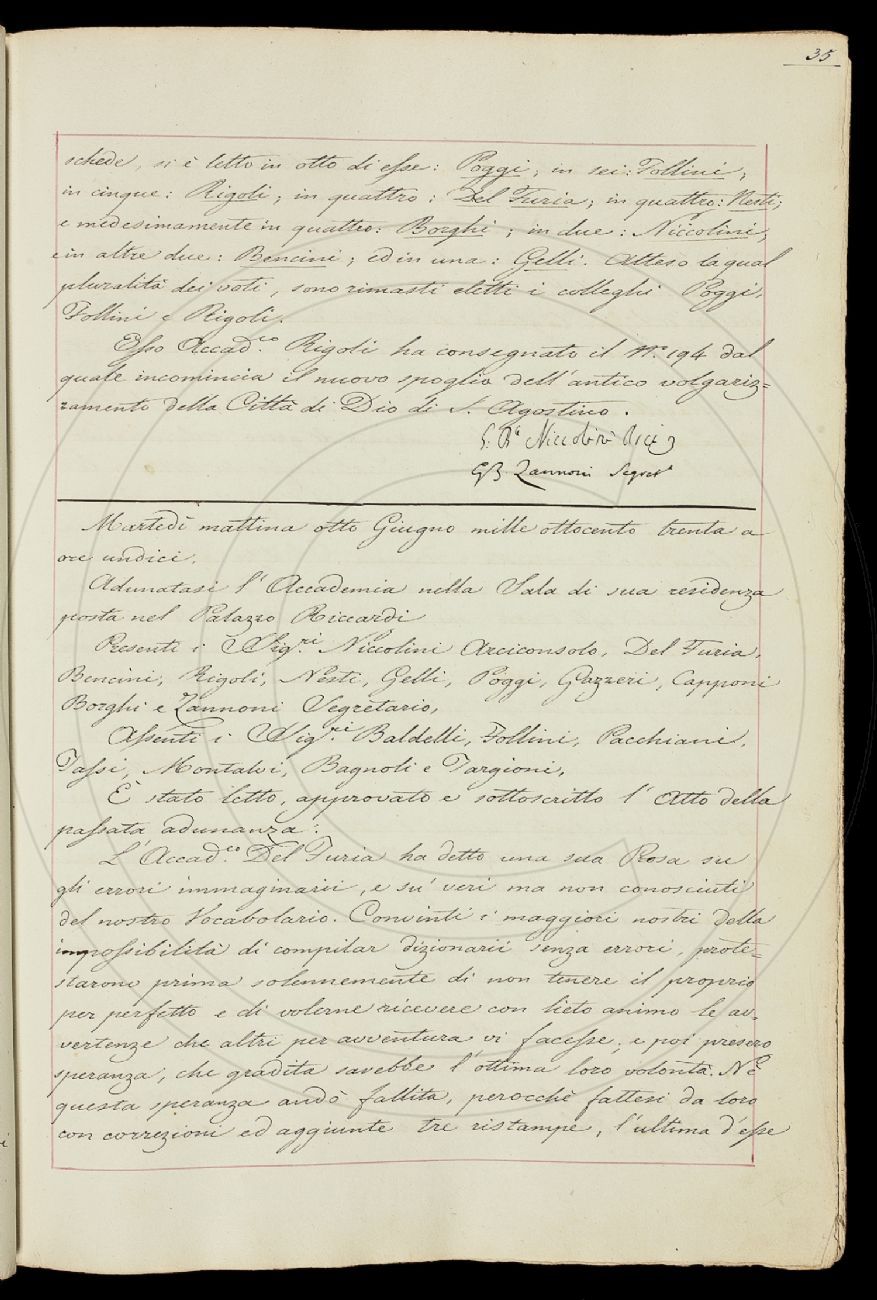 35
schede, si è letto in otto di esse: Poggi; in sei: Follini;
in cinque: Rigoli; in quattro: Del Furia; in quattro: Nesti;
e medesimamente in quattro: Borghi; in due: Niccolini,
e in altre due: Bencini; ed in una: Gelli. Atteso la qual
pluralità dei voti, sono rimasti eletti i colleghi Poggi,
Follini e Rigoli.
Esso Accad.co Rigoli ha consegnato il N.o 194 dal
quale incomincia il nuovo spoglio dell'antico volgariz=
zamento della Città di Dio di S. Agostino.
G. Ba Niccolini
GB Zannoni Segret.o
Martedì mattina otto Giugno mille ottocento trenta a
ore undici.
Adunatasi l'Accademia nella Sala di sua residenza
posta nel Palazzo Riccardi
Presenti i Sig.ri Niccolini Arciconsolo, Del Furia,
Bencini, Rigoli, Nesti, Gelli, Poggi, Gazzeri, Capponi
Borghi e Zannoni Segretario,
Assenti i Sig.ri Baldelli, Follini, Pacchiani,
Tassi, Montalvi, Bagnoli e Targioni,
È stato letto, approvato e sottoscritto l'Atto della
passata adunanza:
L'Accad.co Del Furia ha detto una sua Prosa su
gli errori immaginarii, e su' veri ma non conosciuti
del nostro Vocabolario. Convinti i maggiori nostri della
impossibilità di compilar dizionarii senza errori, prote=
starono prima solennemente di non tenere il proprio
per perfetto e di volerne ricevere con lieto animo le av=
vertenze che altri per avventura vi facesse; e poi presero
speranza, che gradita sarebbe l'ottima loro volontà. Nè
questa speranza andò fallita, perocchè fattesi da loro
con correzioni ed aggiunte tre ristampe, l'ultima d'esse